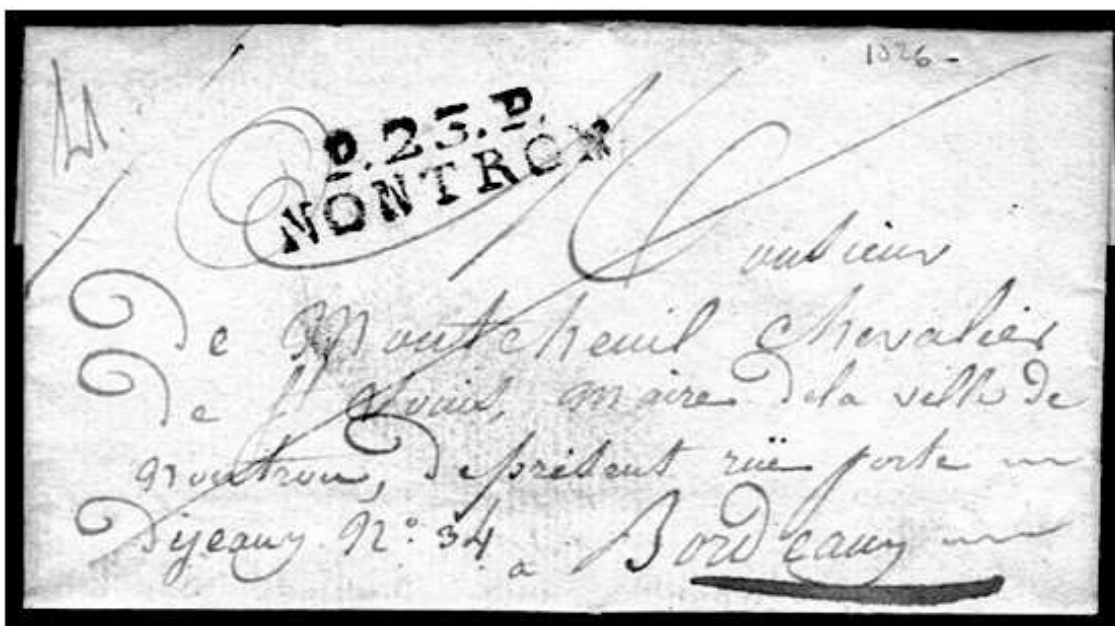 1826 -
P.23.P.
NONTRON
Monsieur
De Montcheuil Chevalier
De St Louis, maire dela ville de
Nontron, de présent rüe porte
Dijeaux N°: 34 a Bordeaux